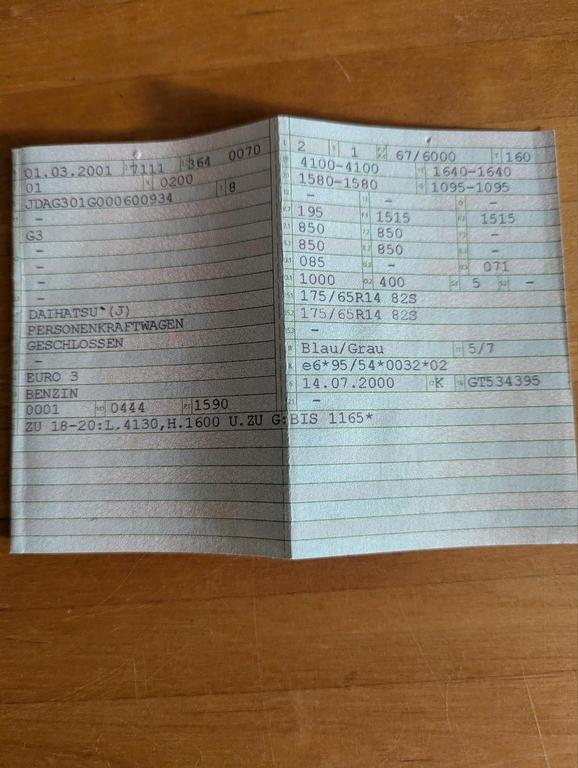 01.03.2001 7111 364 0070
01 0200 8
JDAG301G000600934
-
G3
-
-
-
-
DAIHATSU (J)
PERSONENKRAFTWAGEN
GESCHLOSSEN
-
EURO 3
BENZIN
0001 0444 1590
ZU 18-20:L.4130,H.1600 U.ZU G:BIS 1165*
2 1 67/6000 160
4100-4100 1640-1640
1580-1580 1095-1095
- - -
195 1515 1515
850 850 -
850 850 -
085 - 071
1000 400 5 -
175/65R14 82S
175/65R14 82S
-
Blau/Grau 5/7
e6*95/54*0032*02
14.07.2000 K GT534395
-